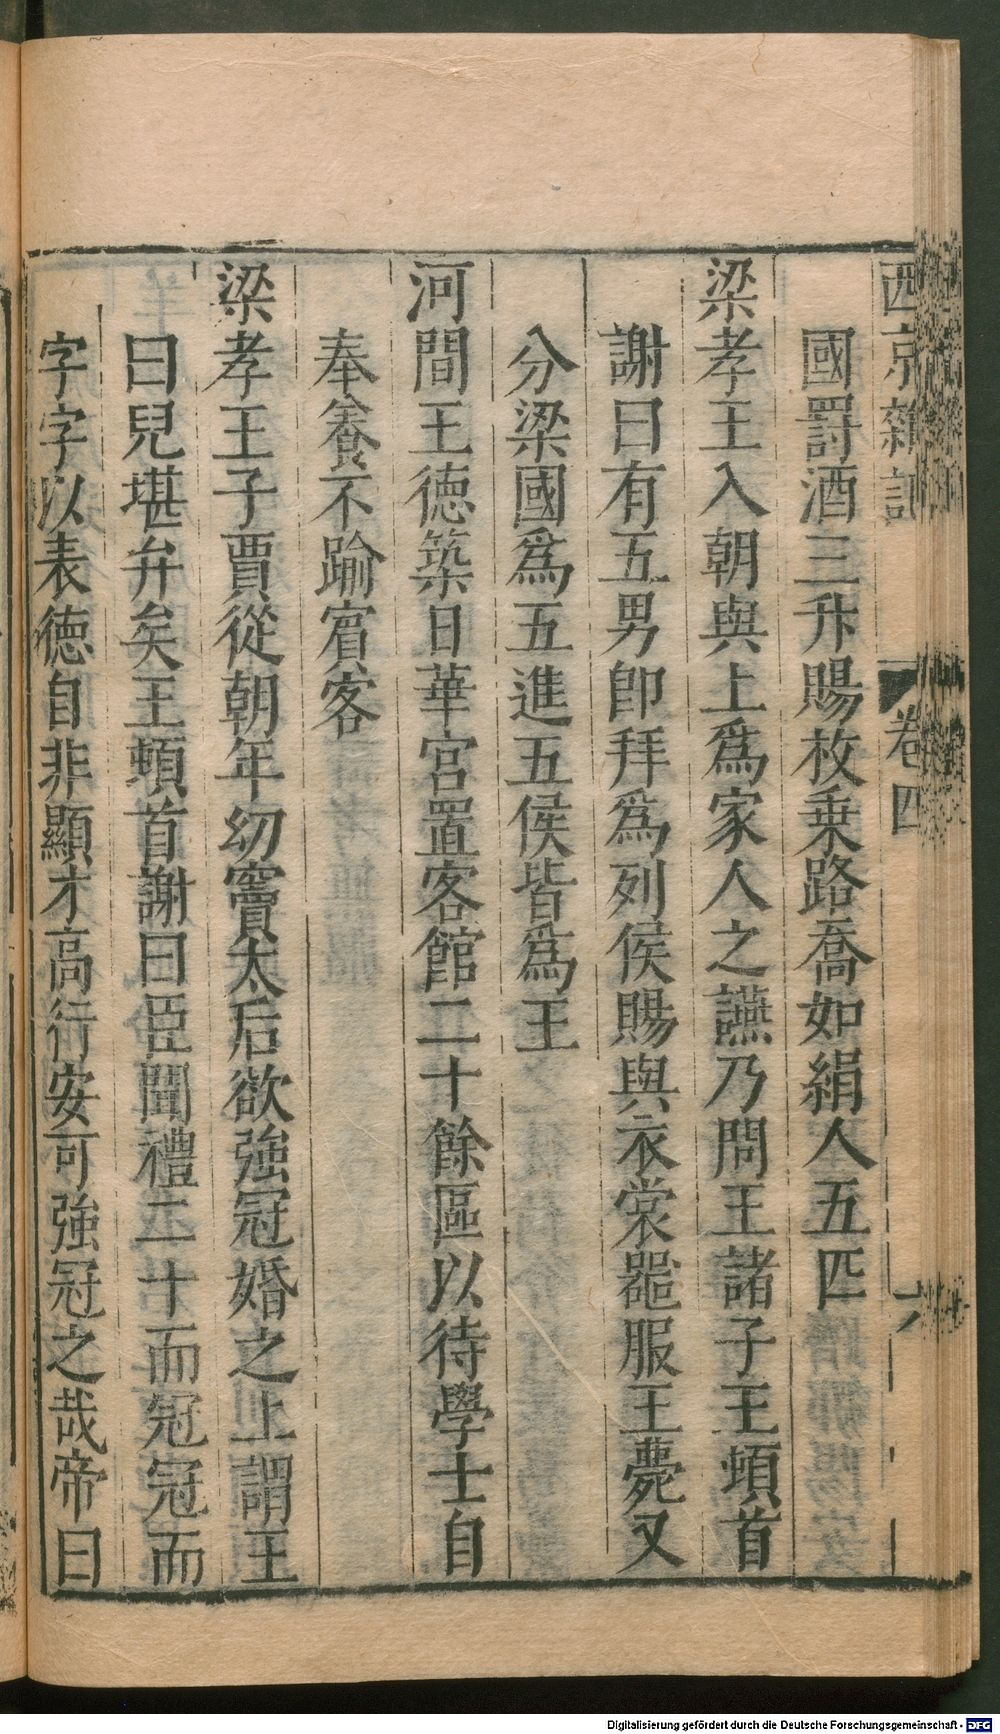 西京雜記 卷四 六
國罸酒三升賜枚乗路喬如絹人五匹
梁孝王入朝與上爲家人之讌乃問王諸子王頓首
謝曰有五男即拜爲列侯賜與衣裳噐服王薨又
分梁國爲五進五侯皆爲王
河間王徳築日華宮置客館二十餘區以待學士自
奉養不踰賓客
梁孝王子賈從朝年幼竇太后欲強冠婚之上謂王
曰兒堪弁矣王頓首謝曰臣聞禮二十而冠冠而
字字以表徳自非顯才高行安可強冠之哉帝曰
Digitalisierung gefördert durch die Deutsche Forschungsgemeinschaft - DFG